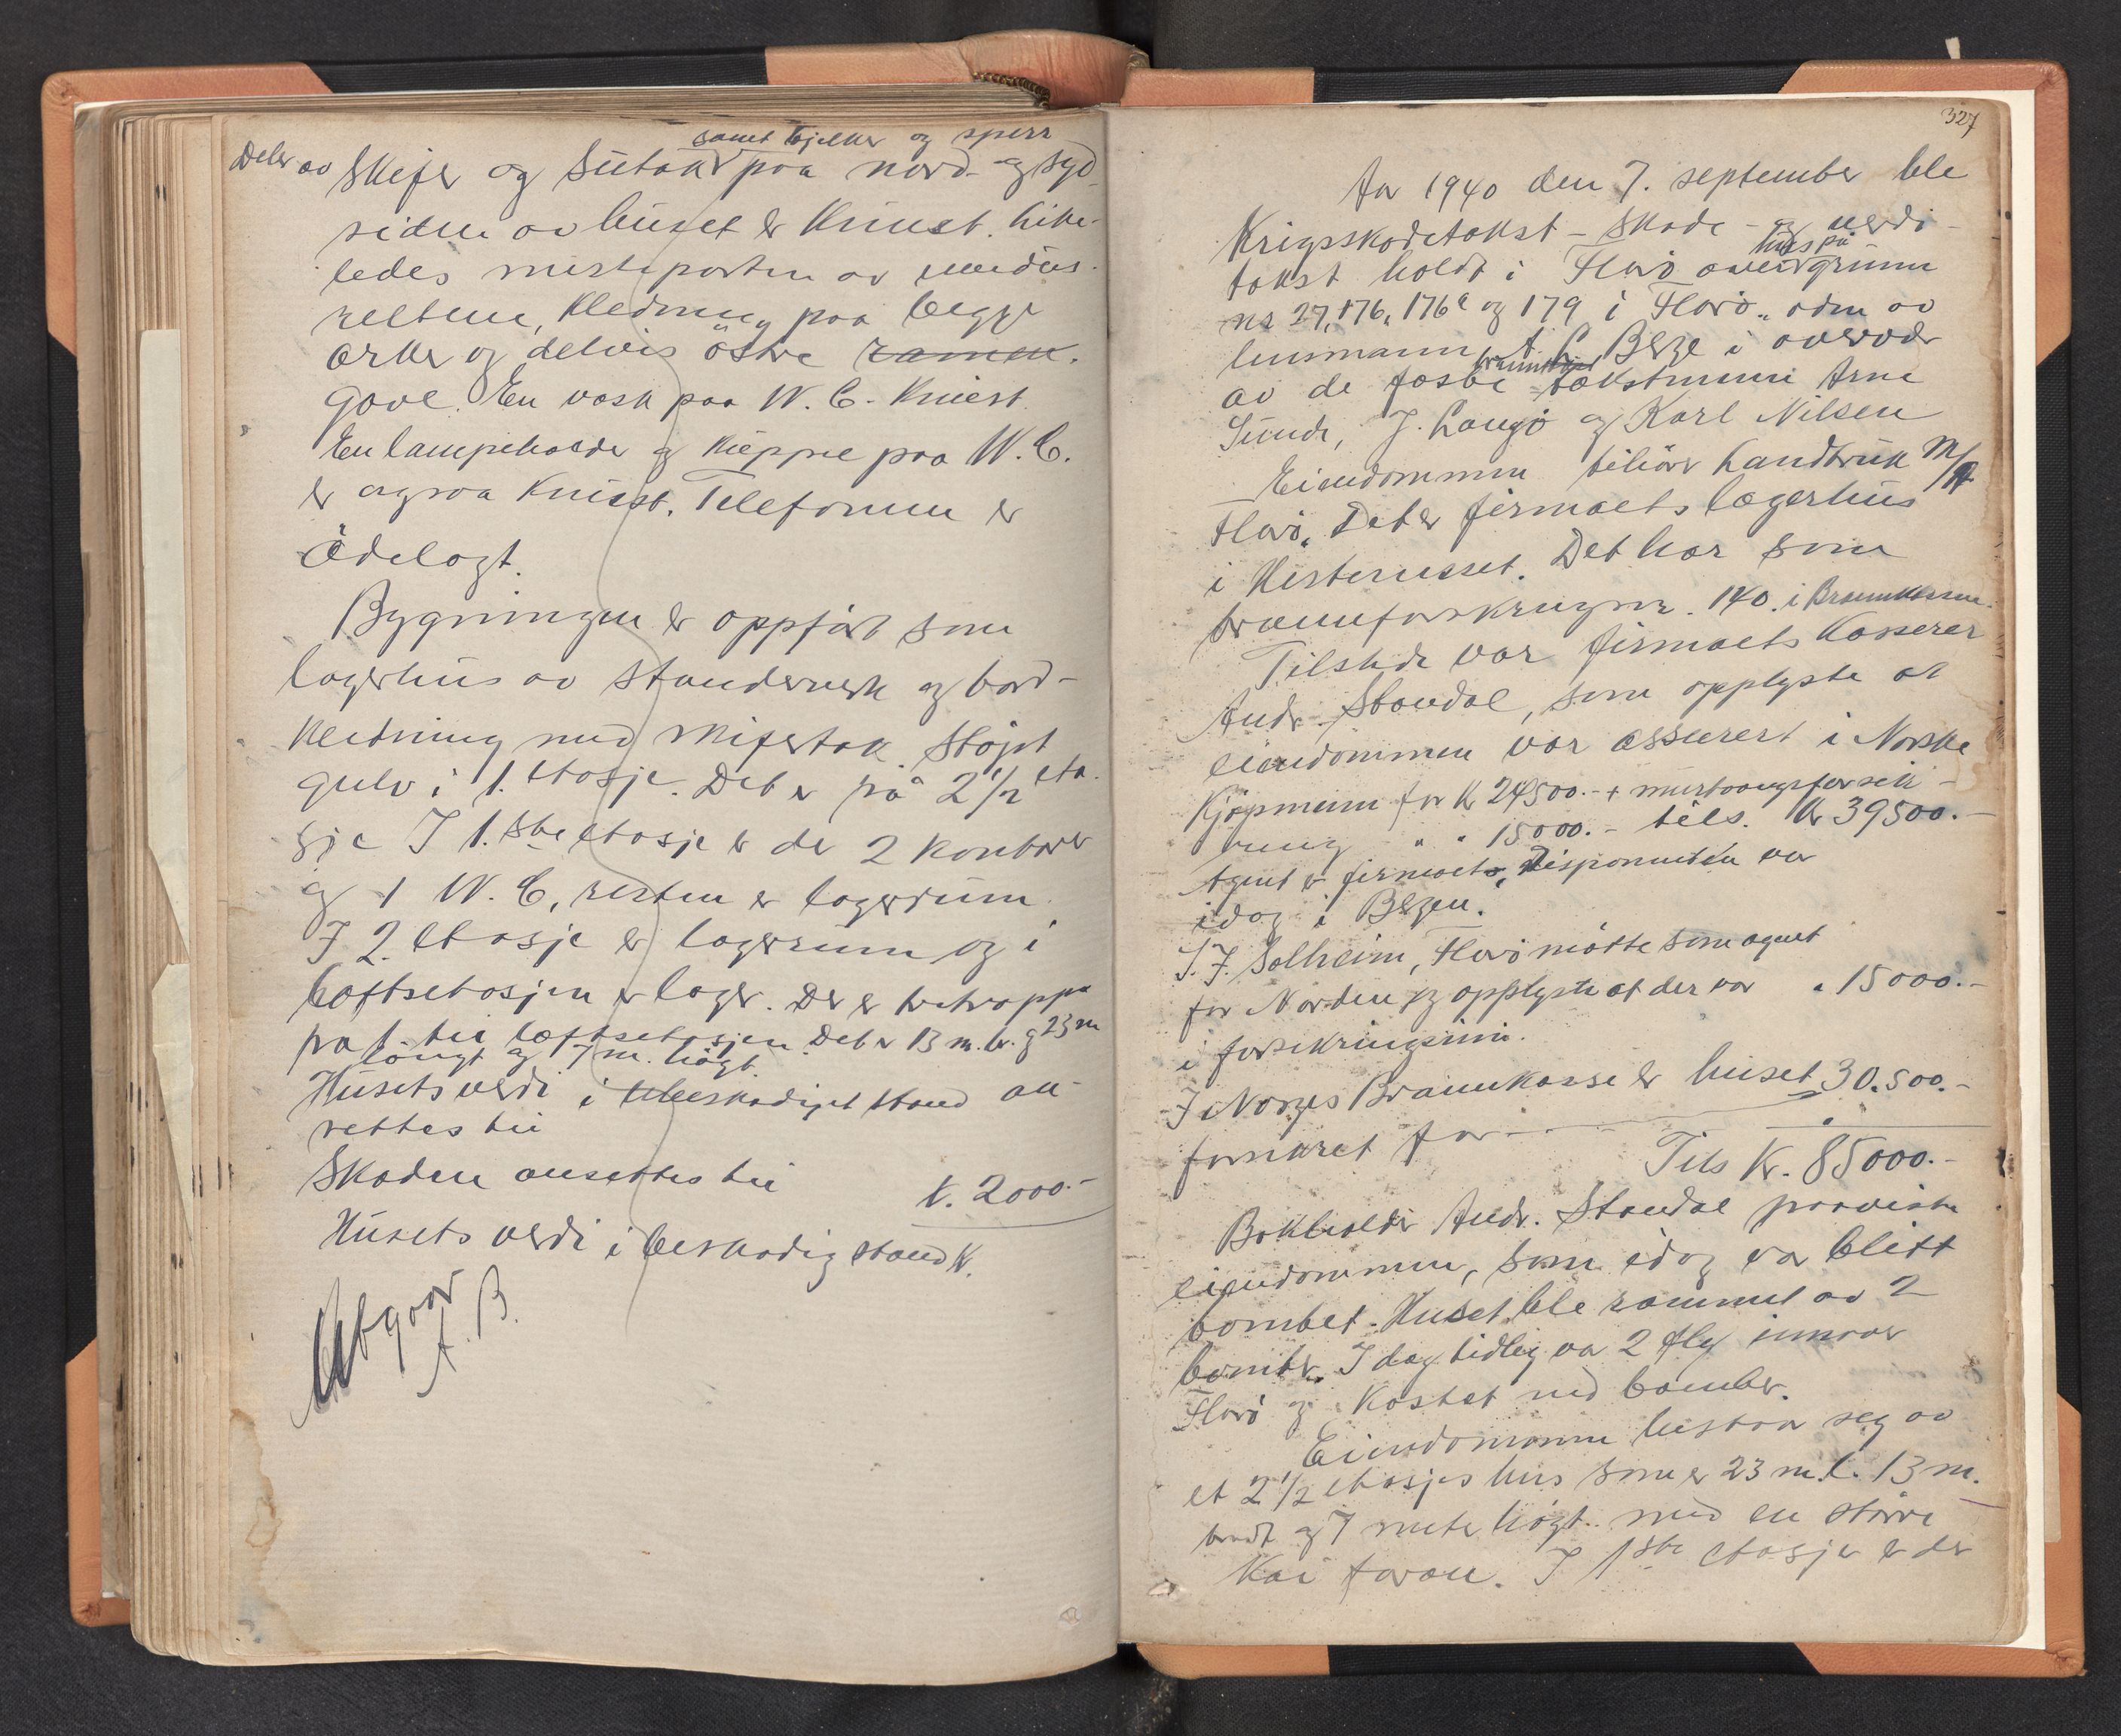 samt bjelker og sperr
Deler av Skifer og Sutak paa nord- og syd-
siden av huset er knust. Like-
ledes mesteparten av vindus-
reltene, kledning paa begge
arker og delvis östre ramen.
gavl. En vask paa W. C. knust.
En lampeholder og kuppel paa W. C.
er ogsaa knust. Telefonen er
ödelagt.
Bygningen er oppfört som
lagerhus av standerverk og bord-
kledning med skifertak. Stöpt
gulv i 1. etasje. Det er på 2 1/2 eta-
sje I 1.ste etasje er der 2 kontorer
og 1 W. C, resten er lagerrum.
I 2. etasje er lagerrum og i
loftsetasjen er lager. Der er tretrappe
fra 1. til loftsetasjen. Det er 13 m. br. og 23 m
langt og 7 m. högt.
Husets verdi i ubeskadiget stand an-
settes til
Skaden ansettes til K. 2000.-
Husets verdi i beskadig stand K.
Utgaar
A. B.
327
Aar 1940 den 7. september ble
Krigsskadetakst - Skade - og verdi-
takst holdt i Florö over hus på grunn
ns 27, 176, 176a og 179 i Florö, adm av
lensmann A L Berge i overvær
av de faste branntakst takstmenn Arne
Sunde, J. Langö og Karl Nilsen
Eiendommen tilhörer Landbruk A/S
Florö. Det er firmaets lagerhus
i Hesteneset. Det har som
brannforsikringsnr. 140. i Brannkassen.
Tilstede var firmaets Kasserer
Andr. Standal, som opplyste at
eiendommen var assurert i Norske
Kjöpmenn for Kr 24500.- + merbrangsforsik-
ring " " 15000.- tils. Kr 39500.-
Agent er firmaets Disponenten var
idag i Bergen.
S. J. Solheim, Florö mötte som agent
for Norden og opplyste at der var " 15000.-
i forsikringssum.
I Norges Brannkasse er huset 30.500.-
forsikret for
Tils Kr. 85000.-
Bokholder Andr. Standal paaviste
eiendommen, som idag var blitt
bombet. Huset ble rammet av 2
bomber. I dag tidlig var 2 fly innover
Florö og kastet ned bomber.
Eiendommen bestaar seg av
et 2 1/2 etasjes hus som er 23 m. l. 13 m.
bredt og 7 meter högt. med en större
Kai foran. I 1ste etasje er der